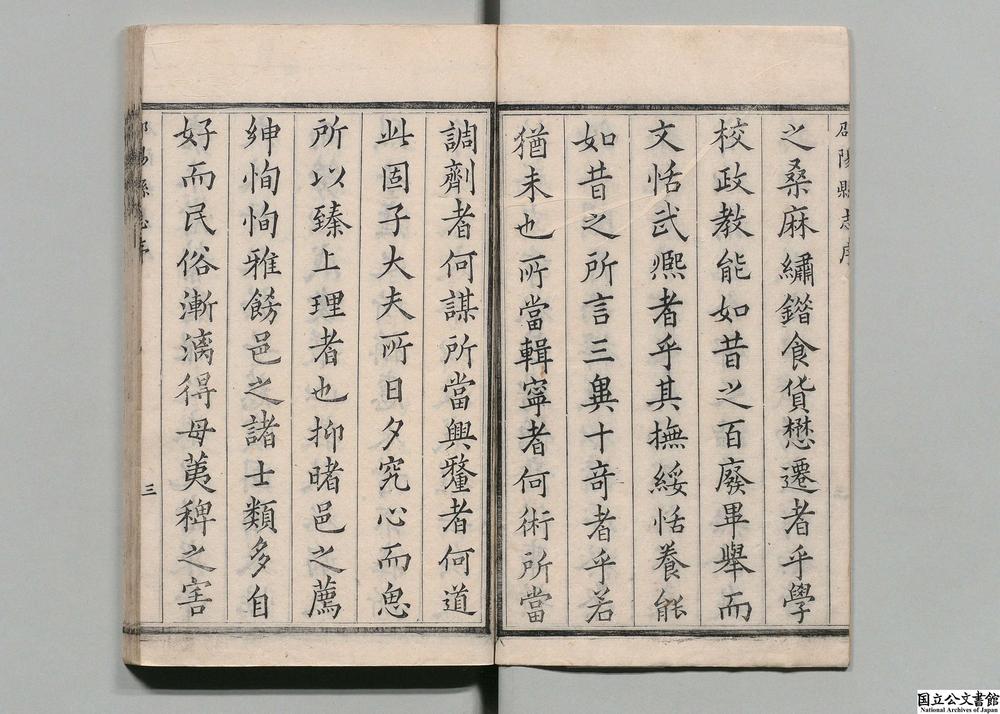 邵陽縣志序
之桑麻繡鍇食貨懋遷者乎學
校政教能如昔之百廢畢舉而
文恬武熈者乎其撫綏恬養能
如昔之所言三異十奇者乎若
猶未也所當輯寧者何術所當
調劑者何謀所當興釐者何道
此固子大夫所日夕究心而思
所以臻上理者也抑睹邑之薦
紳恂恂雅飭邑之諸士類多自
好而民俗漸漓得毋荑稗之害
邵陽縣志序
三
国立公文書館
National Archives of Japan